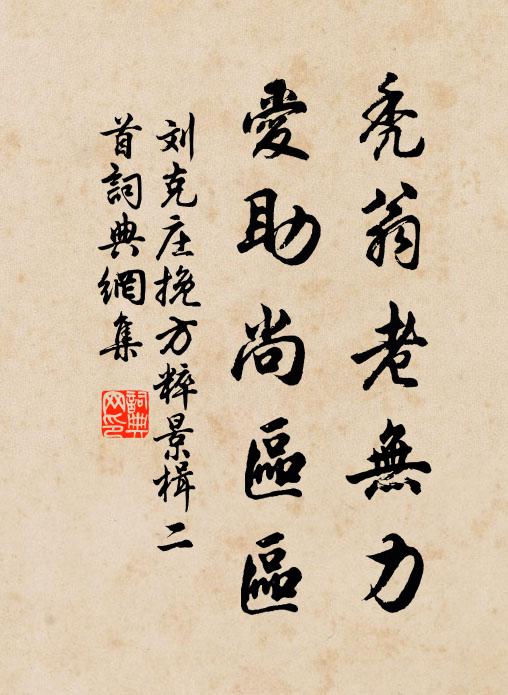 禿翁老無力
愛助尚區區
刘克庄挽方粹景楫二
首詞典網集
詞典
网印